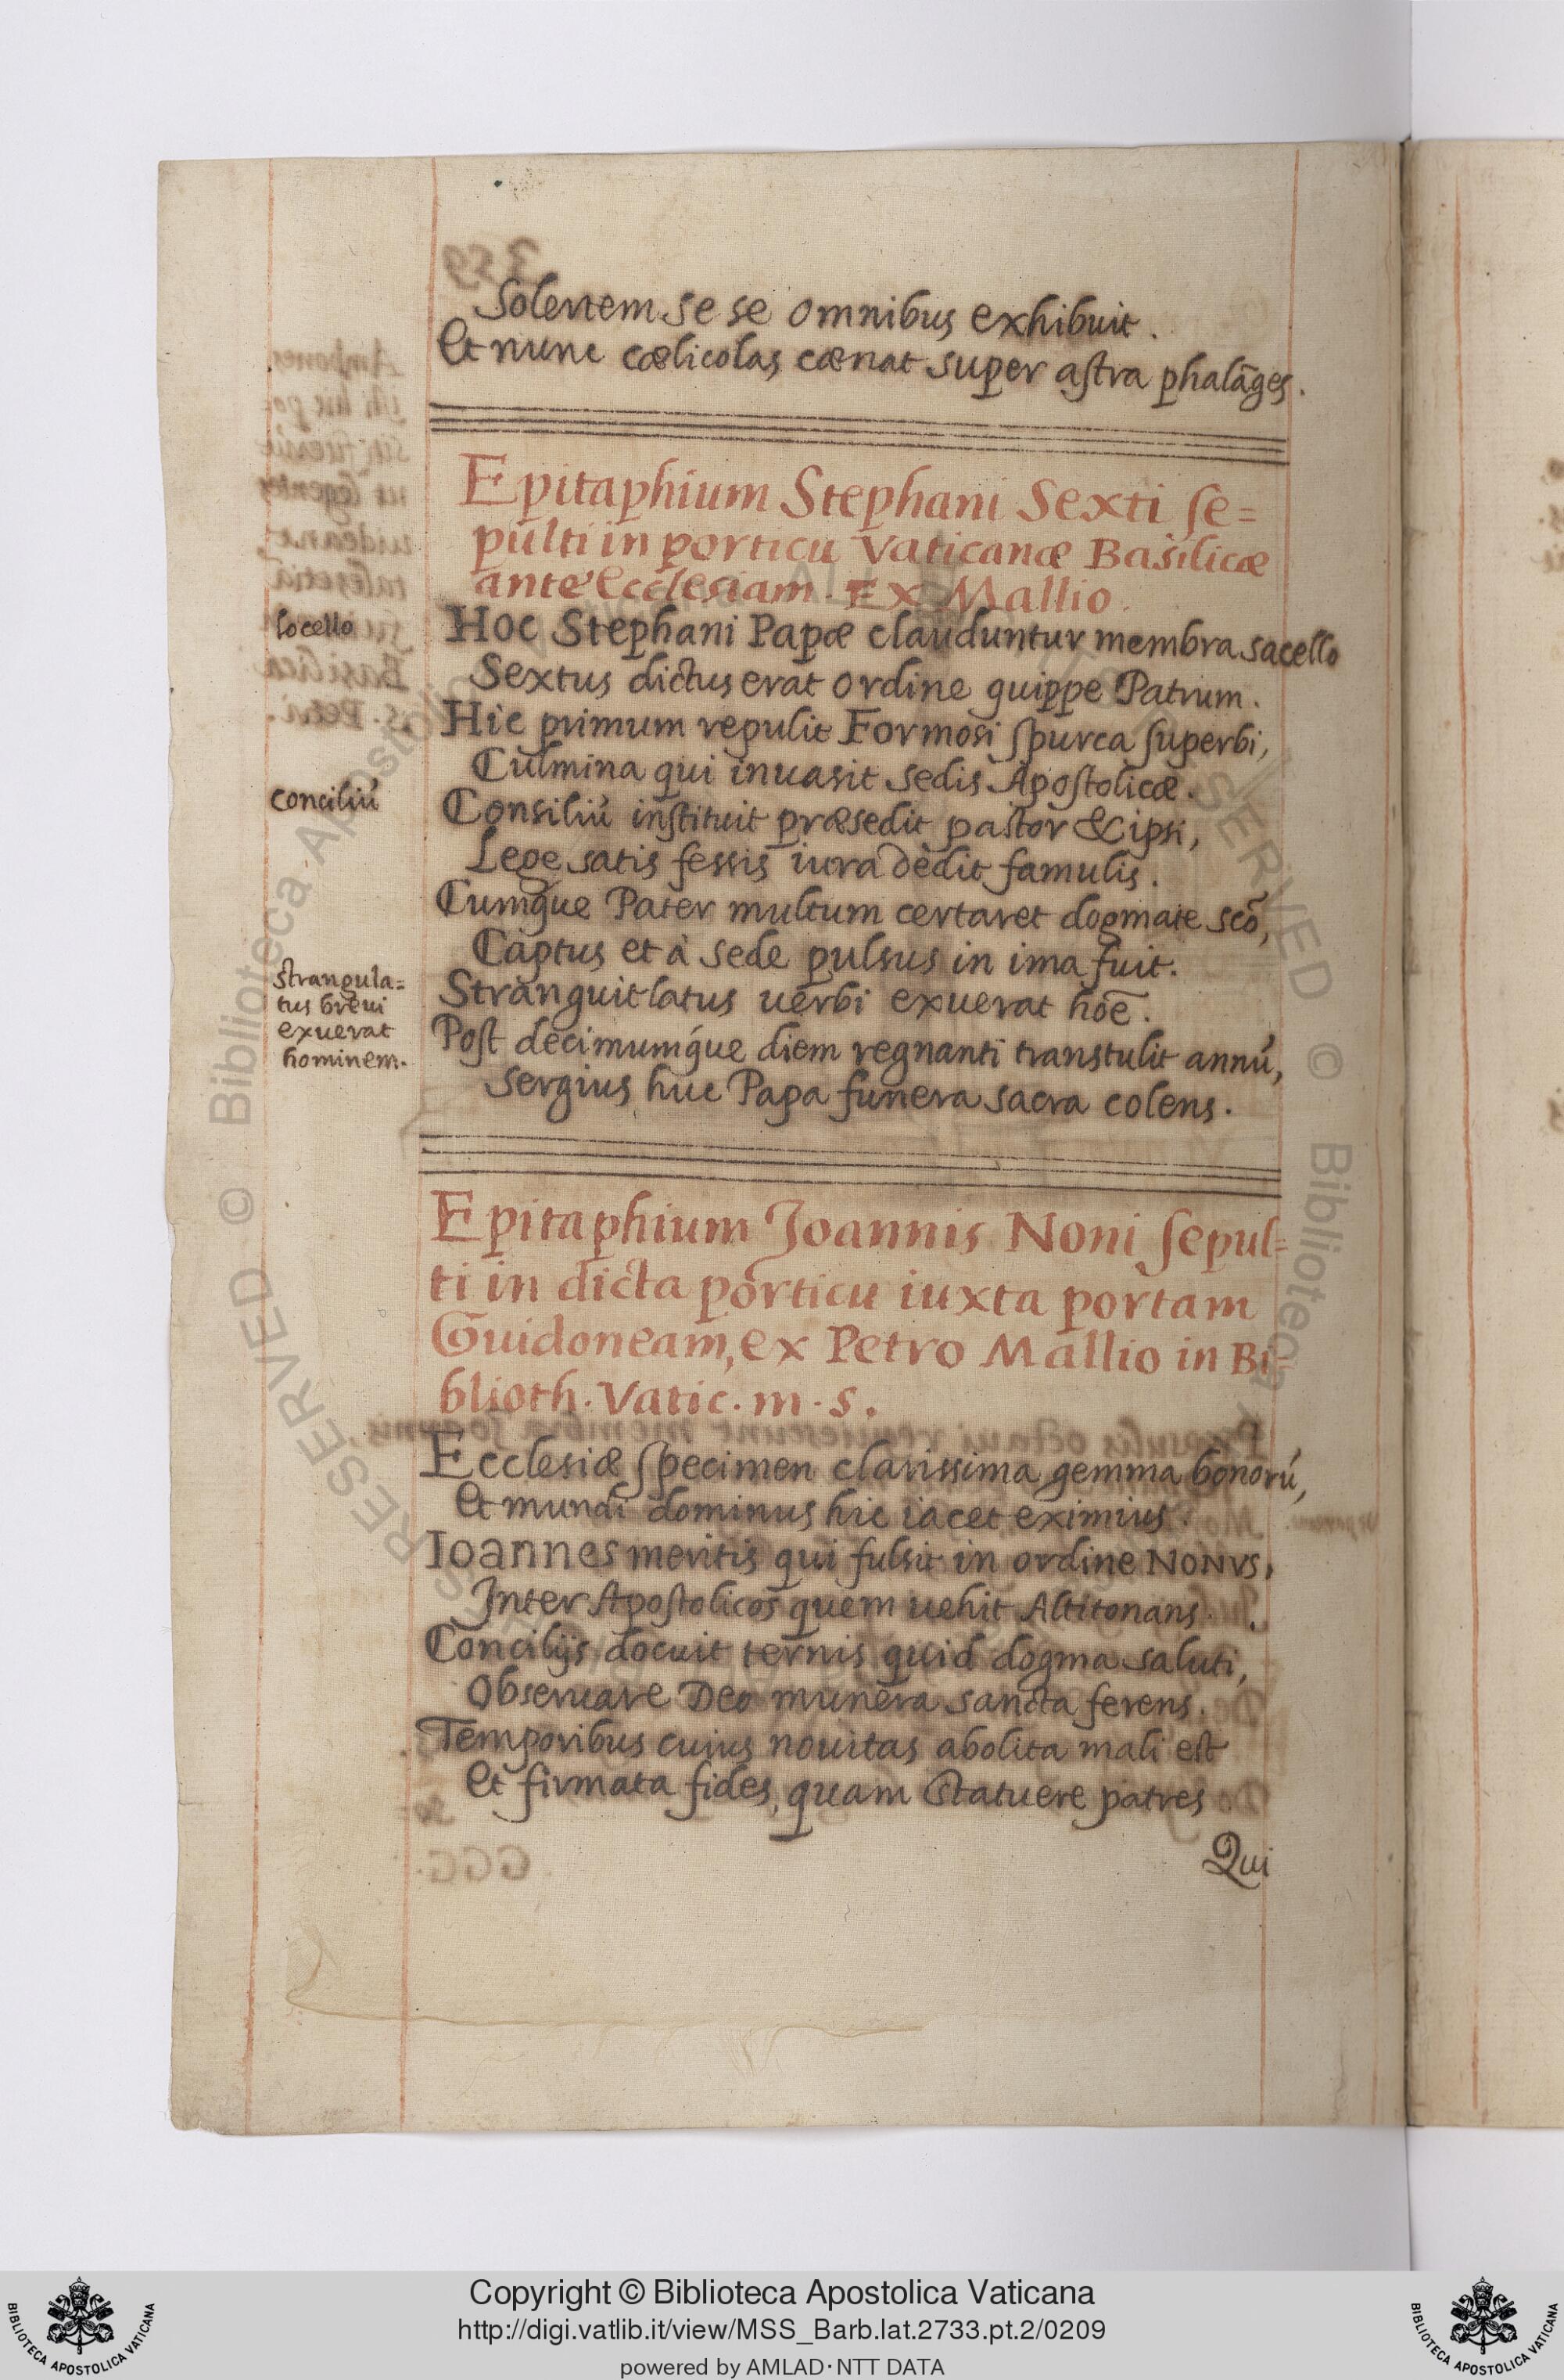 Solertem se se omnibus exhibuit.
Et nunc cœlicolas cœnat super astra phalāges.
Epitaphium Stephani Sexti se=
pulti in porticu Vaticanæ Basilicæ
ante Ecclesiam. Ex Mallio.
locello
Hoc Stephani Papæ clauduntur membra sacello
Sextus dictus erat ordine quippe Patrum.
Hic primum repulit Formosi spurca superbi,
Culmina qui inuasit sedis Apostolicæ.
conciliū
Consiliū instituit præsedit pastor & ipsi,
Lege satis fessis iura dedit famulis.
Cumque Pater multum certaret dogmate scō,
Captus et à sede pulsus in ima fuit.
strangula=
tus breui
exuerat
hominem.
Stranguitlatus uerbi exuerat hoē.
Post decimumque diem regnanti transtulit annū,
Sergius huc Papa funera sacra colens.
Epitaphium Joannis Noni sepul=
ti in dicta porticu iuxta portam
Guidoneam, ex Petro Mallio in Bi=
blioth. Vatic. m. s.
Ecclesiæ specimen clarissima gemma bonorū,
Et mundi dominus hic iacet eximius.
Ioannes meritis qui fulsit in ordine NONVS,
Inter Apostolicos quem uehit Altitonans.
Concilijs docuit ternis quid dogma saluti,
Obseruare Deo munera sancta ferens.
Temporibus cuius nouitas abolita mali est
Et firmata fides, quam statuere patres
Qui
Copyright © Biblioteca Apostolica Vaticana
http://digi.vatlib.it/view/MSS_Barb.lat.2733.pt.2/0209
powered by AMLAD·NTT DATA
BIBLIOTECA APOSTOLICA VATICANA
BIBLIOTECA APOSTOLICA VATICANA